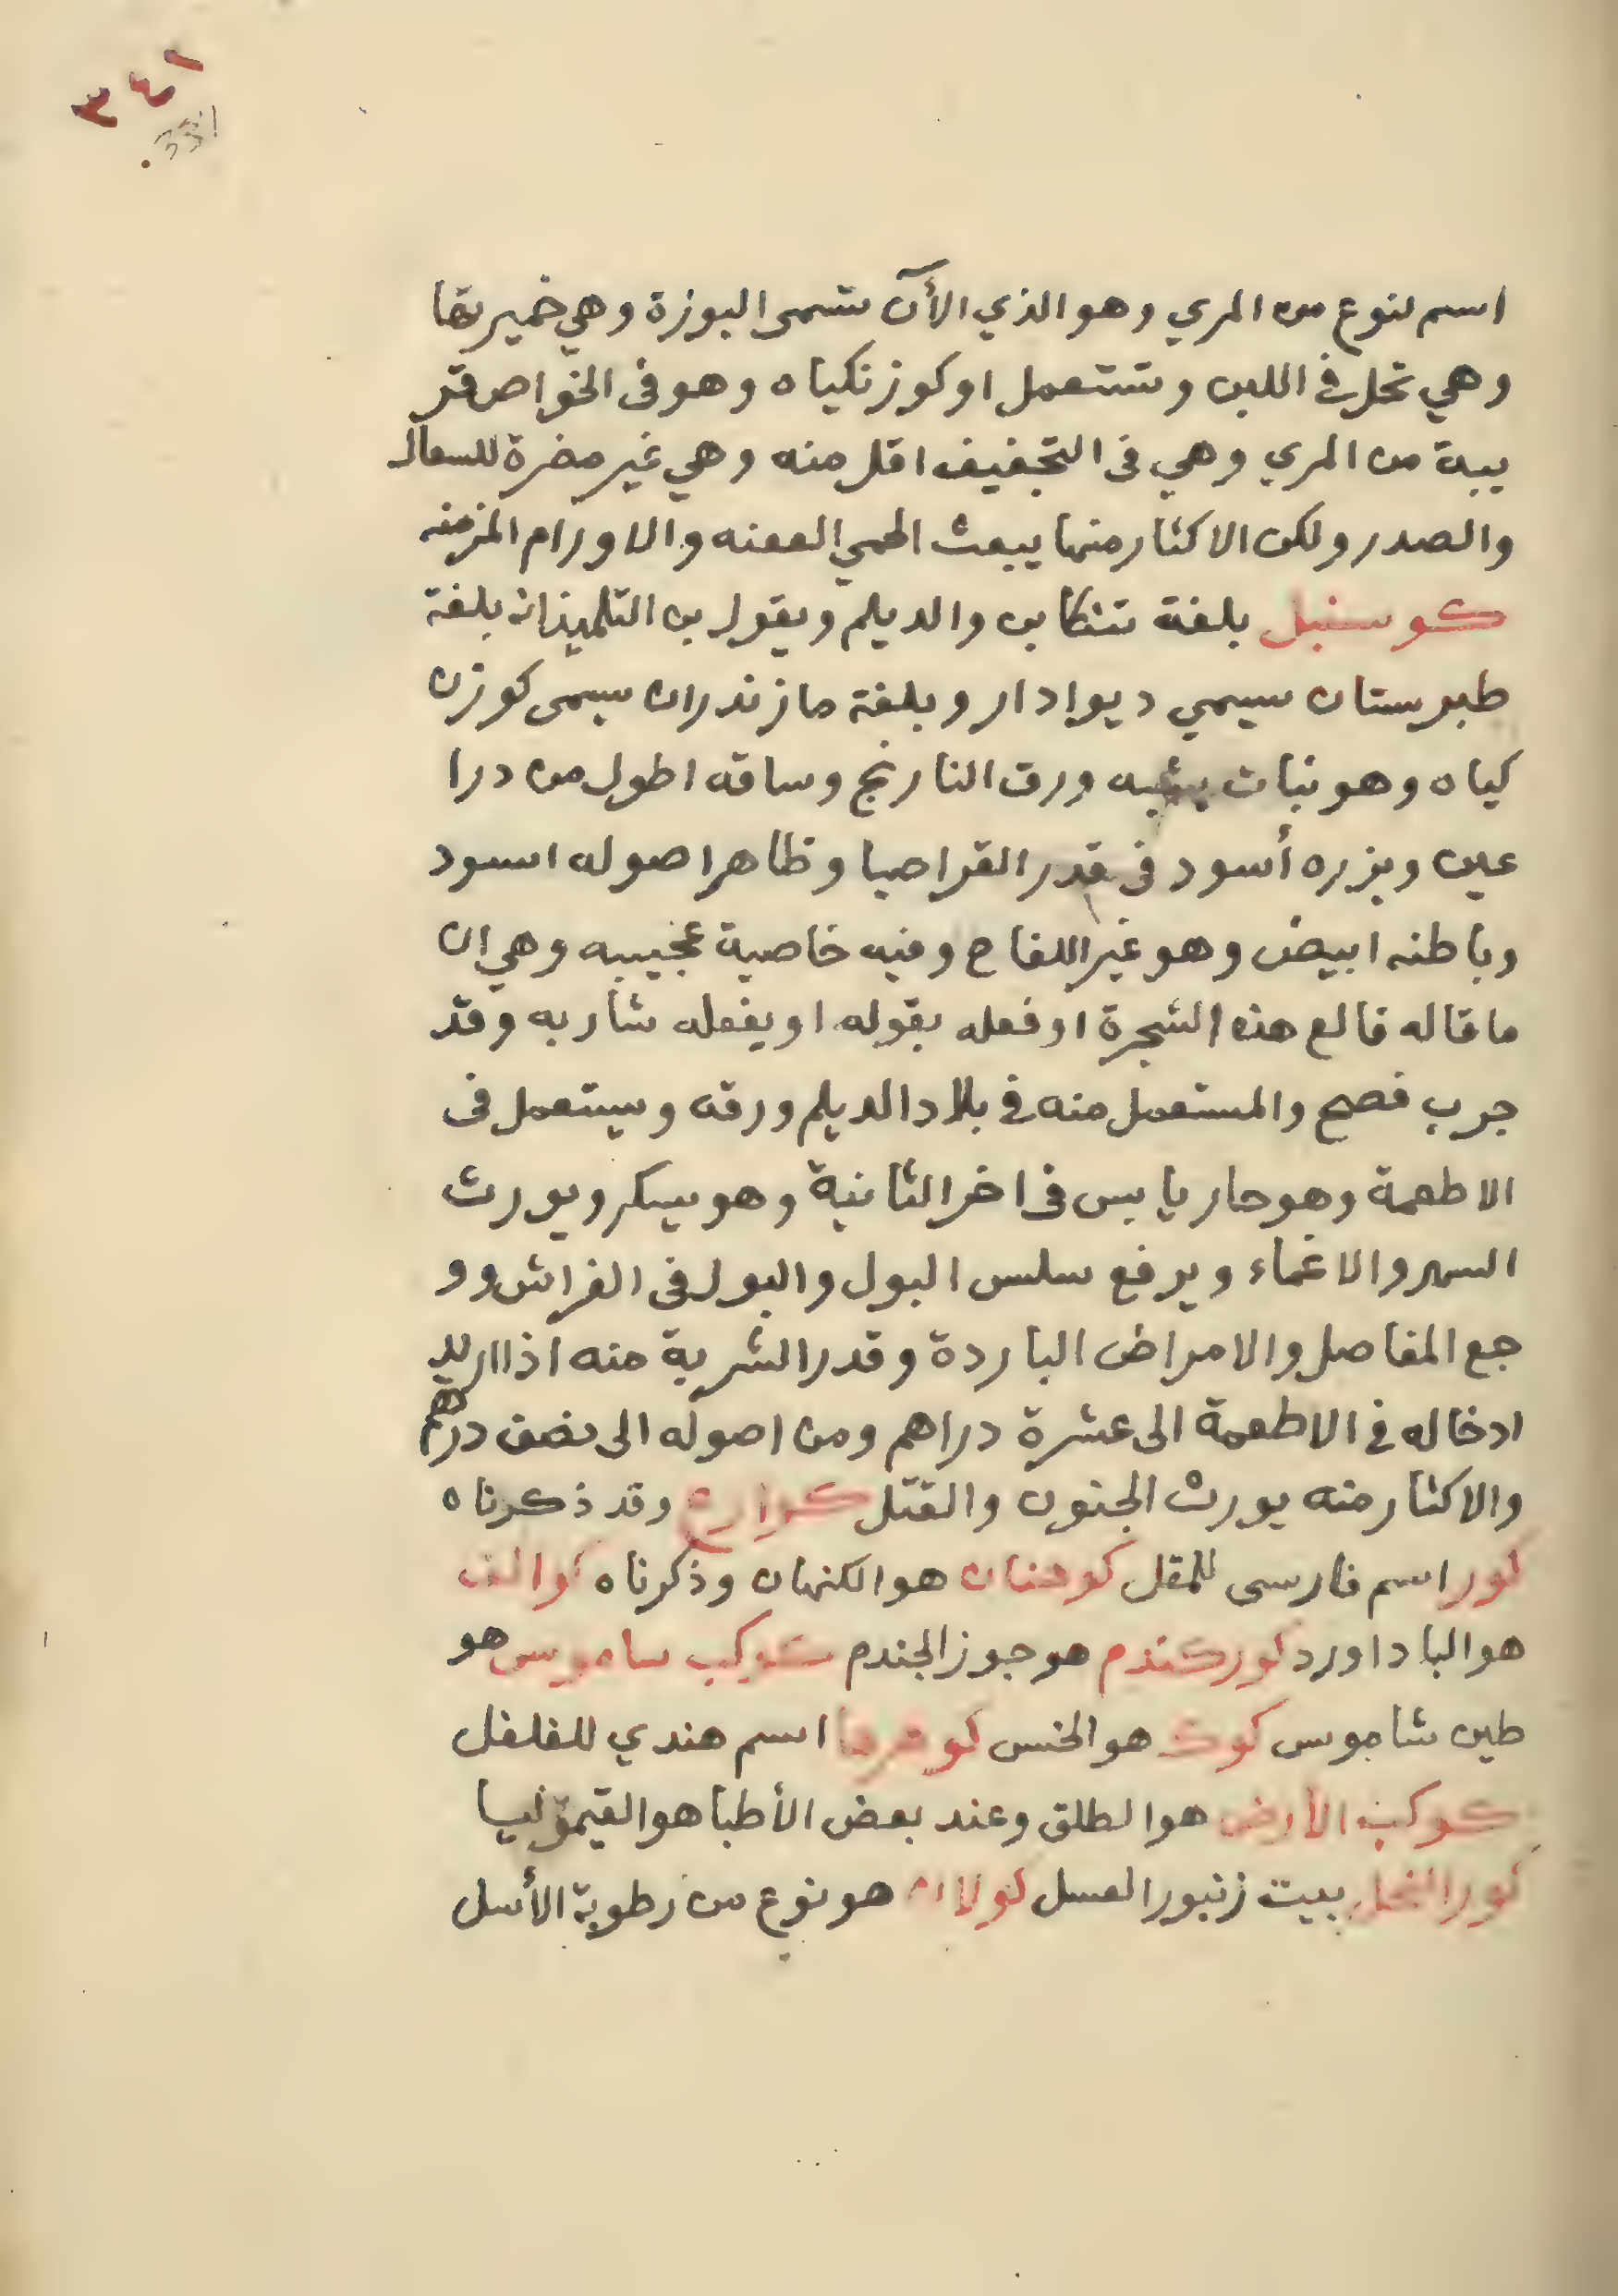 ٣٤١
337
اسم لنوع من المري وهو الذي الأآن تسمى البوزة وهي خميرتها
وهي تحل في اللبن وتستعمل او كوزنكياه وهو في الخواص قر
يبة من المري وهي في التجفيف اقل منه وهي غير مضرة للسعال
والصدر ولكن الاكثار منها يبعث الحمي العفنه والاورام المزمنه
كوسنبل بلغة تنكابن والديلم ويقول بن التلميذ انه بلغة
طبرستان سيمي ديوادار وبلغة مازندران سيمى كوزن
كياه وهو نبات يشبه ورق النارنج وساقه اطول من درا
عين وبزره أسود في قدر القراصيا وظاهر اصوله اسود
وباطنه ابيض وهو غير اللفاح وفيه خاصية عجيبه وهي ان
ما قاله قالع هذه الشجرة او فعله يقوله او يفعله شاربه وقد
جرب فصح والمستعمل منه في بلاد الديلم ورقه وسيتعمل في
الاطعمة وهو حار يابس في اخر الثانية وهو يسكر ويورث
السهر والاغماء ويرفع سلس البول والبول في الفراش وو
جع المفاصل والامراض الباردة وقدر الشربة منه اذا اريد
ادخاله في الاطعمة الى عشرة دراهم ومن اصوله الى نصف درهم
والاكثار منه يورث الجنون والقتل كوارع وقد ذكرناه
كور اسم فارسى للمقل كوهنان هو الكنهان وذكرناه
هو الباداورد كوركندم هو جوز الجندم كوكب ساموس هو
طين شاموس كوك هو الخس اسم هندي للفلفل
كوكب الأرض هو الطلق وعند بعض الأطبا هو القيموليا
كور النحل بيت زنبور العسل كولان هو نوع من رطوبة الأسل